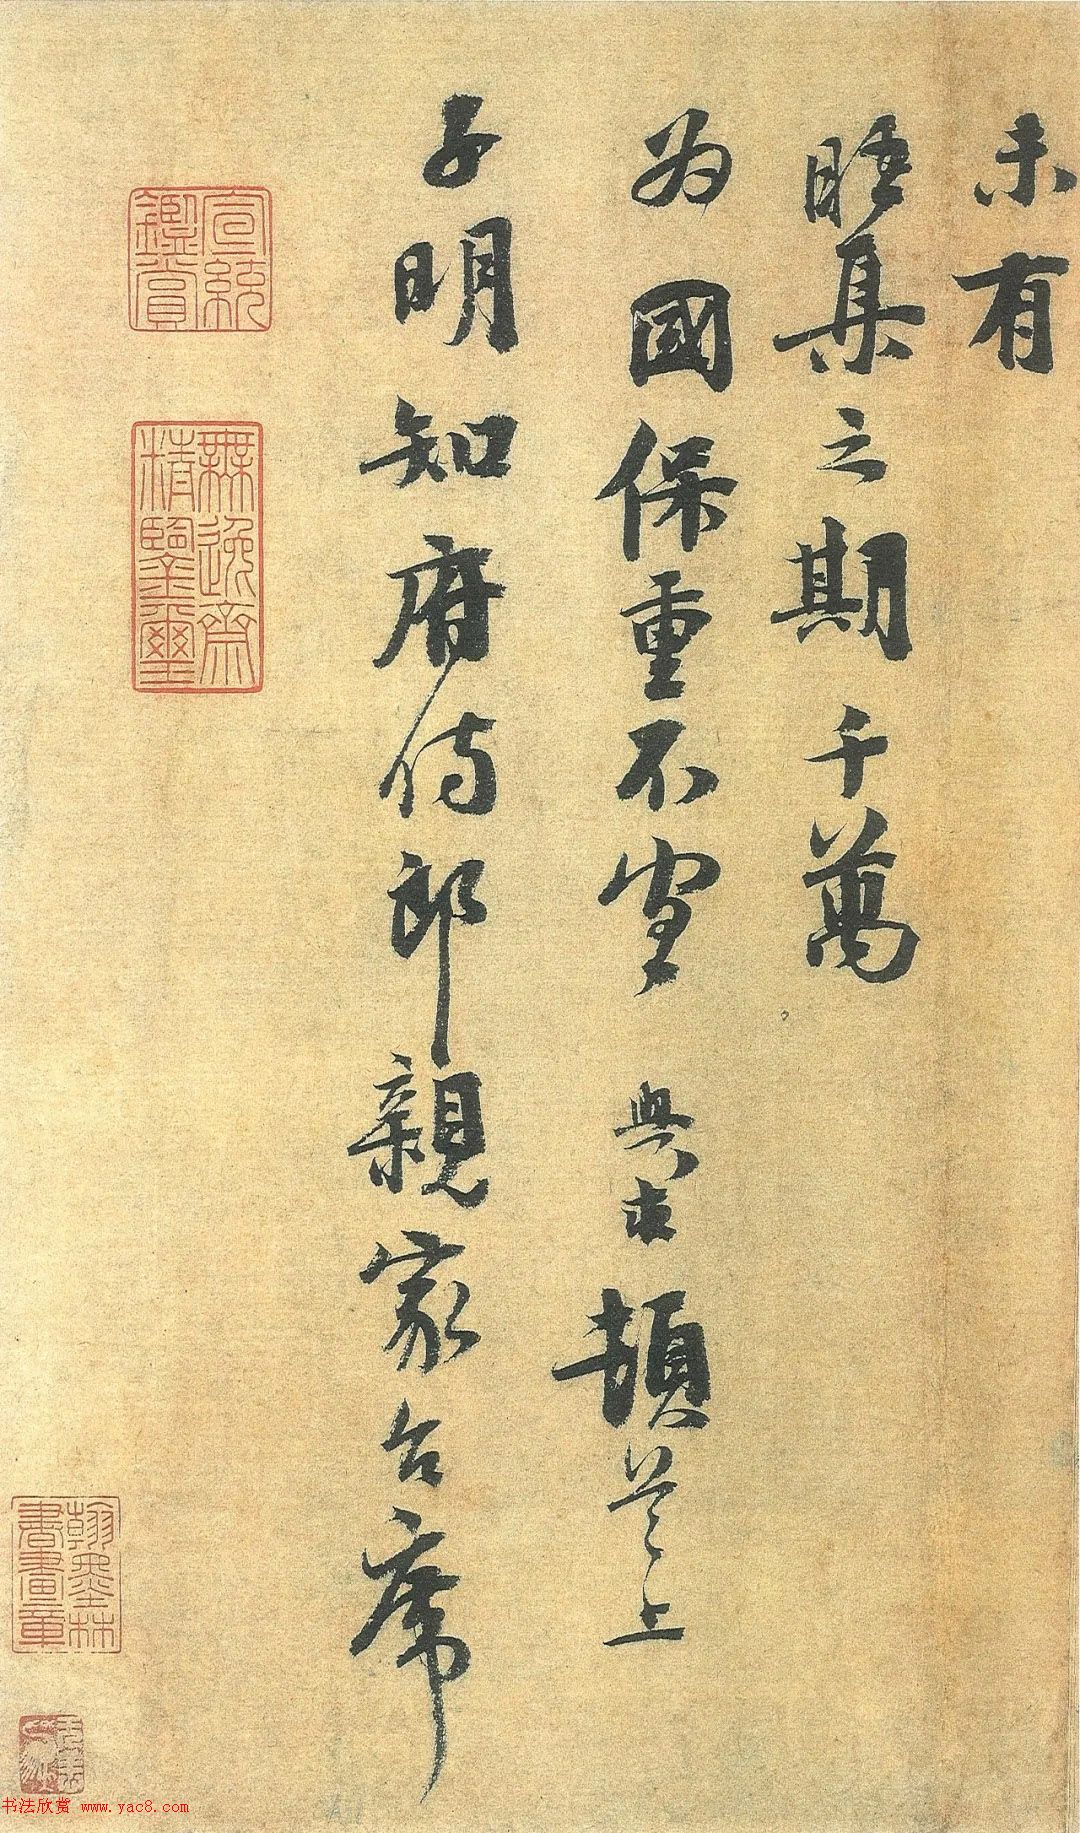 未有
晤集之期千萬
為國保重不宣 與求頓首上
子明知府侍郎親家台席
宣統
鑑賞
無逸齋
精鑒璽
翰墨林
書畫章
书法欣赏 www.yac8.com